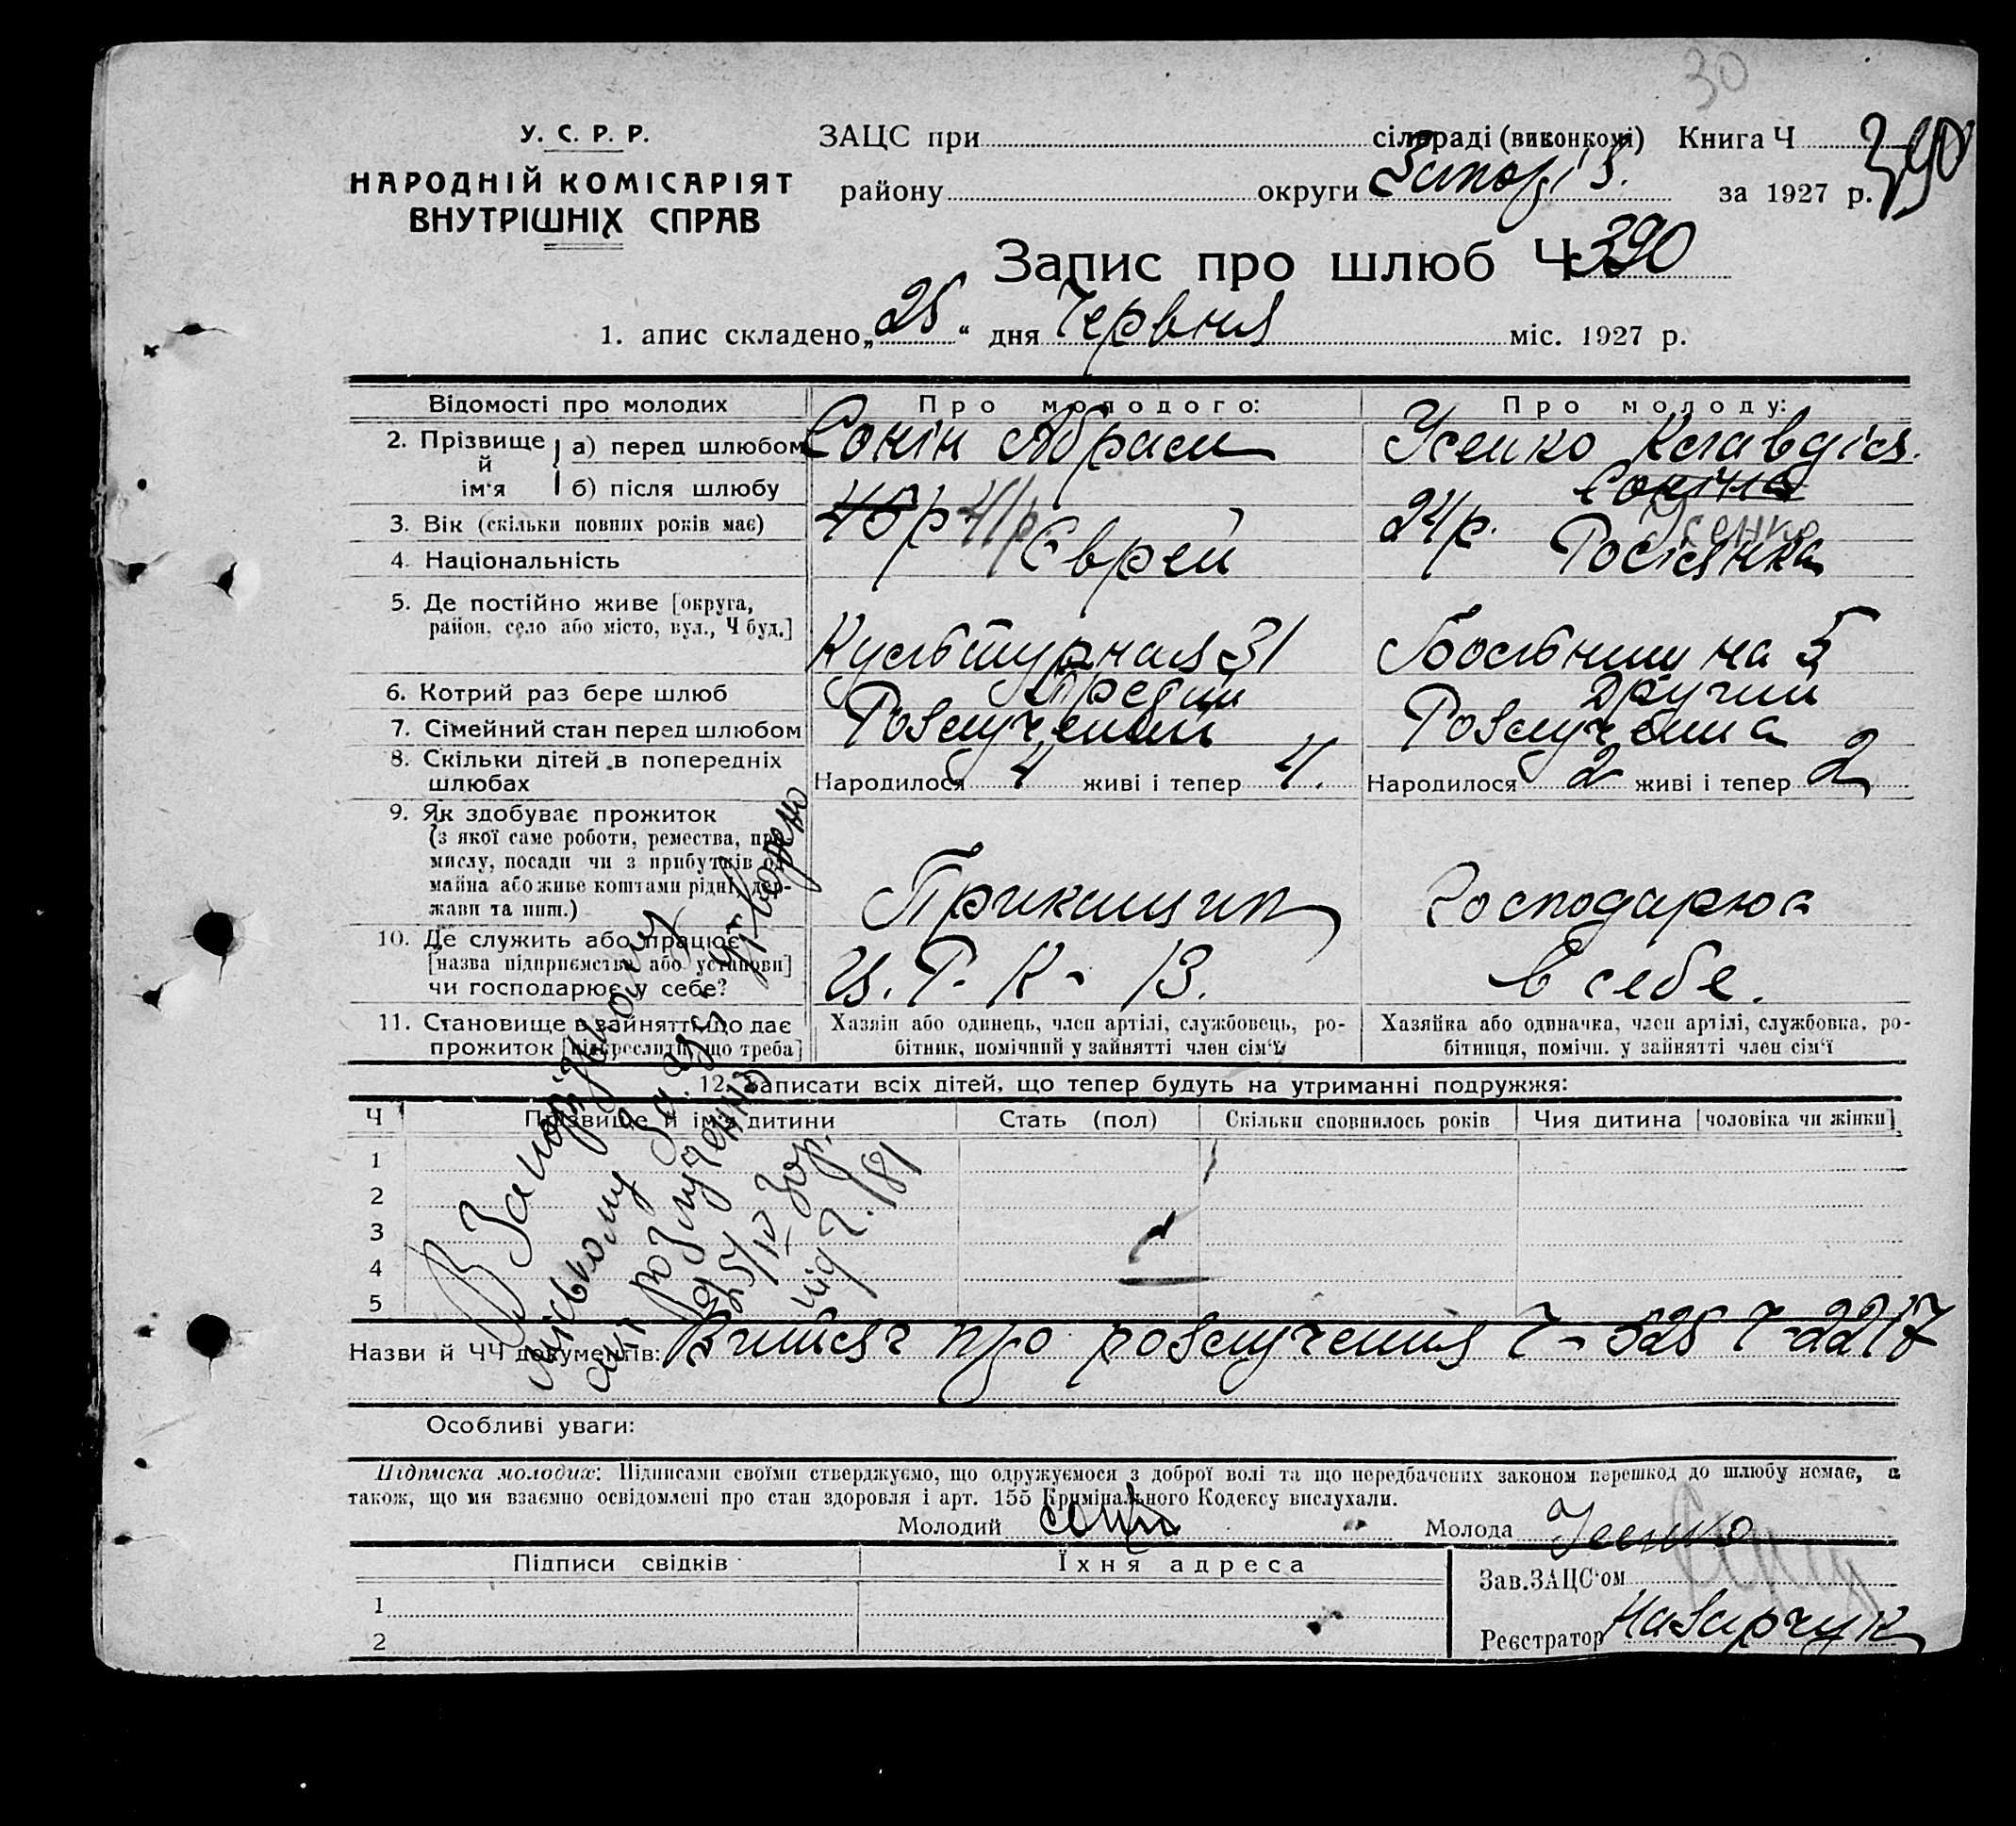 30
У. С. Р. Р.
НАРОДНІЙ КОМІСАРІЯТ
ВНУТРІШНІХ СПРАВ
ЗАЦС при сільраді (виконкомі) Книга Ч 390
району округи Запоріз. за 1927 р.
Запис про шлюб Ч 390
1. апис складено „25“ дня Червня міс. 1927 р.
Відомості про молодих
Про молодого:
Про молоду:
2. Прізвище й ім'я
а) перед шлюбом
Сонін Абрам
Усенко Клавдія.
б) після шлюбу
Соніна
Усенко
3. Вік (скільки повних років має)
40р 41р
24р.
4. Національність
Єврей
Росіянка
5. Де постійно живе [округа,
район, село або місто, вул., Ч буд.]
Культурная 31
на 5
6. Котрий раз бере шлюб
Третій
Другий
7. Сімейний стан перед шлюбом
Розлучений
Розлучена
8. Скільки дітей в попередніх
шлюбах
Народилося 4 живі і тепер 4.
Народилося 2 живі і тепер 2
9. Як здобуває прожиток
(з якої саме роботи, ремества, про-
мислу, посади чи з прибутків од
майна або живе коштами рідні, дер-
жави та инш.)
Прикащик
Господарює
10. Де служить або працює
[назва підприємства або установи]
чи господарює у себе?
Ц. Р. К - 13.
в себе.
11. Становище в занятті, що дає
прожиток [підкреслити, що треба]
Хазяїн або одинець, член артілі, службовець, ро-
бітник, помічний у зайнятті член сім'ї
Хазяйка або одиначка, член артілі, службовка, ро-
бітниця, помічн. у зайнятті член сім'ї
12. Записати всіх дітей, що тепер будуть на утриманні подружжя:
Ч
Прізвище й ім'я дитини
Стать (пол)
Скільки сповнилось років
Чия дитина [чоловіка чи жінки]
1
2
3
4
5
В Запорізькому
міському Загсі утворено
акт розлучення
25/IV 30р.
під Ч. 181
Назви й ЧЧ документів: Витяг про розлучення Ч - 525 Ч - 2217
Особливі уваги:
Підписка молодих: Підписами своїми стверджуємо, що одружуємося з доброї волі та що передбачених законом перешкод до шлюбу немає, а
також, що ми взаємно освідомлені про стан здоровля і арт. 155 Кримінального Кодексу вислухали.
Молодий
Молода Усенко
Підписи свідків
Їхня адреса
1
2
Зав. ЗАЦС'ом
Реєстратор Назарчук